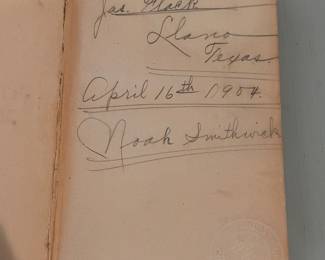 Jas. Flack
Llano
Texas.
April 16th 1904.
Noah Smithwick